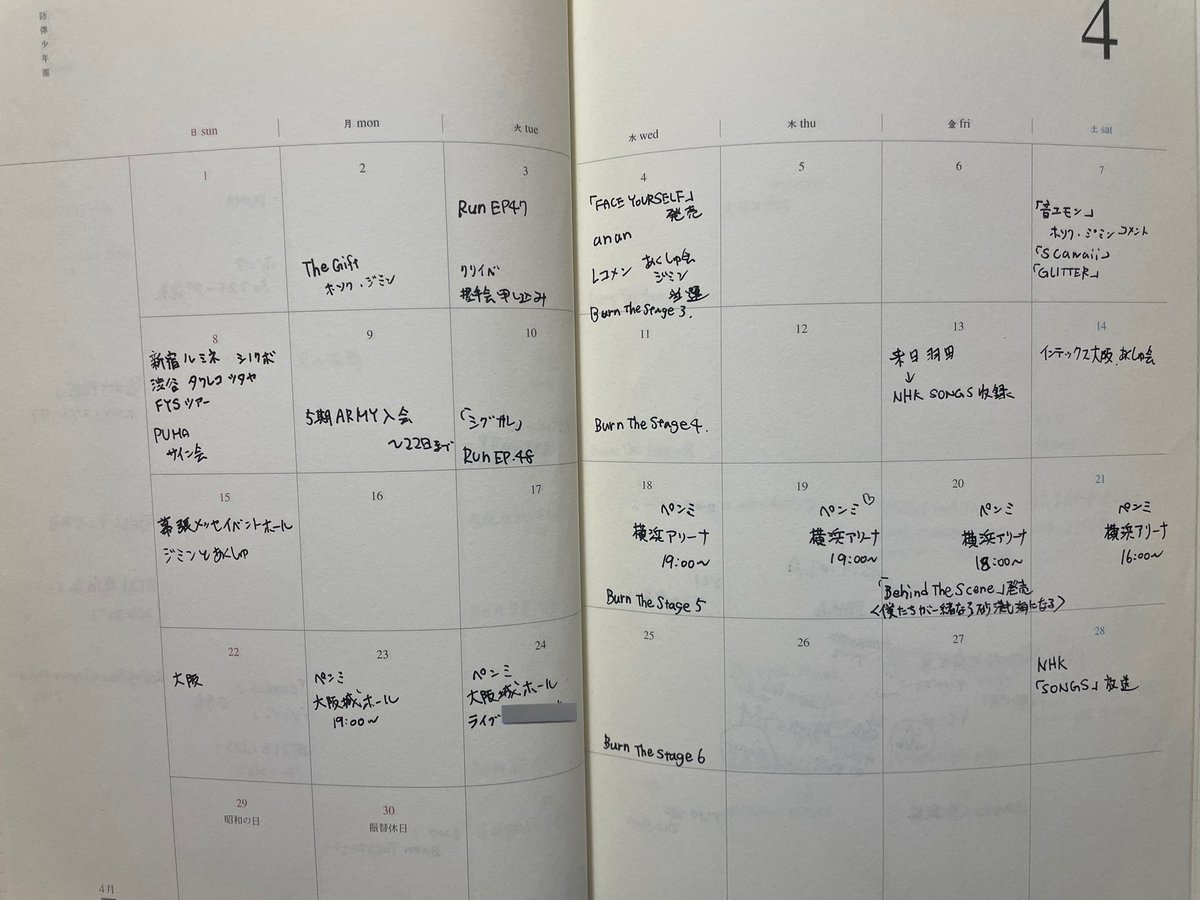 防弾少年團
4
日 sun
月 mon
火 tue
水 wed
木 thu
金 fri
土 sat
1
2
The Gift
ホソク・ジミン
3
Run EP47
クリイベ
握手会申し込み
4
「FACE YOURSELF」
発売
anan
Lコメン あくしゅ会
ジミン
当選
Burn The Stage 3.
5
6
7
「音エモン」
ホソク・ジミンコメント
「Scawaii」
「GLITTER」
8
新宿ルミネ シリクボ
渋谷 タワレコ ツタヤ
FYSツアー
PUMA
サイン会
9
5期ARMY入会
〜22日まで
10
「シグカレ」
Run EP.48
11
Burn The Stage 4.
12
13
来日 羽田
↓
NHK SONGS 収録
14
インテックス大阪.あくしゅ会
15
幕張メッセイベントホール
ジミンとあくしゅ
16
17
18
ペンミ
横浜アリーナ
19:00〜
Burn The Stage 5
19
ペンミ♡
横浜アリーナ
19:00〜
20
ペンミ
横浜アリーナ
18:00〜
「Behind The Scene」発売
<僕たちが一緒なら砂漠も海になる>
21
ペンミ
横浜アリーナ
16:00〜
22
大阪
23
ペンミ
大阪城ホール
19:00〜
24
ペンミ
大阪城ホール
ライブ
25
Burn The Stage 6
26
27
28
NHK
「SONGS」放送
29
昭和の日
30
振替休日
4月